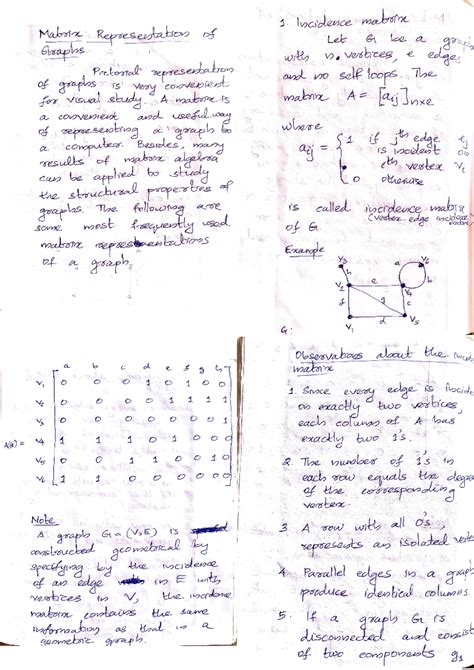 Matrix Representation of
Graphs.
Pictorial representation
of graphs is very convenient
for visual study. A matrix is
a convenient and useful way
of representing a graph to
a computer. Besides, many
results of matrix algebra
can be applied to study
the structural properties of
graphs. The following are
some most frequently used
matrix representations
of a graph.
1. Incidence matrix
Let G be a graph
with n vertices, e edges
and no self loops. The
matrix A = [aij]n×e
where
aij = { 1 if jth edge ej
is incident on
ith vertex vi
0 otherwise
is called incidence matrix
(vertex-edge incidence matrix)
of G
Example
V3 a V2
h
V2 e V4 b
g f c
V1 d V5
G:
a b c d e f g h
V1 0 0 0 1 0 1 0 0
V2 0 0 0 0 1 1 1 1
V3 0 0 0 0 0 0 0 1
A(G) = V4 1 1 1 0 1 0 0 0
V5 0 0 1 1 0 0 1 0
V6 1 1 0 0 0 0 0 0
Note
A graph G=(V,E) is
constructed geometrical by
specifying by the incidence
of an edge in E with
vertices in V, the incidence
matrix contains the same
information as that in a
geometric graph.
Observations about the incidence
matrix
1. Since every edge is incident
on exactly two vertices,
each column of A has
exactly two 1's.
2. The number of 1's in
each row equals the degree
of the corresponding
vertex.
3. A row with all 0's,
represents an isolated vertex
4. Parallel edges in a graph
produce identical columns.
5. If a graph G is
disconnected and consists
of two components g1